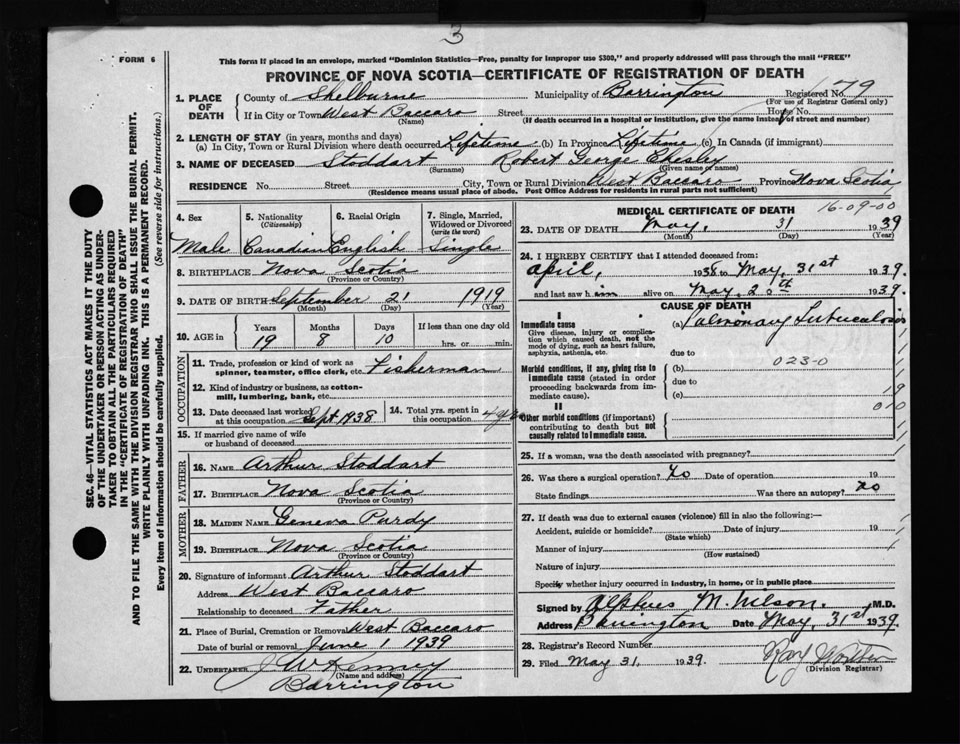 3
FORM 6
This form if placed in an envelope, marked "Dominion Statistics—Free, penalty for improper use $300," and properly addressed will pass through the mail "FREE"
PROVINCE OF NOVA SCOTIA—CERTIFICATE OF REGISTRATION OF DEATH
1. PLACE OF DEATH
County of Shelburne Municipality of Barrington Registered No. 79
(For use of Registrar General only)
If in City or Town West Baccaro Street House No.
(Name) (If death occurred in a hospital or institution, give the name instead of street and number)
2. LENGTH OF STAY (in years, months and days)
(a) In City, Town or Rural Division where death occurred Lifetime (b) In Province Lifetime (c) In Canada (if immigrant)
3. NAME OF DECEASED Stoddart Robert George Chesley
(Surname) (Given name or names)
RESIDENCE No. Street City, Town or Rural Division West Baccaro Province Nova Scotia
(Residence means usual place of abode. Post Office Address for residents in rural parts not sufficient)
4. Sex 5. Nationality (Citizenship) 6. Racial Origin 7. Single, Married, Widowed or Divorced (write the word)
Male Canadian English Single
8. BIRTHPLACE Nova Scotia
(Province or Country)
9. DATE OF BIRTH September 21 1919
(Month) (Day) (Year)
10. AGE in Years Months Days If less than one day old
19 8 10 hrs. or min.
OCCUPATION
11. Trade, profession or kind of work as spinner, teamster, office clerk, etc. Fisherman
12. Kind of industry or business, as cotton-mill, lumbering, bank, etc.
13. Date deceased last worked at this occupation Sept 1938
14. Total yrs. spent in this occupation 4 yrs
15. If married give name of wife or husband of deceased
FATHER
16. NAME Arthur Stoddart
17. BIRTHPLACE Nova Scotia
(Province or Country)
MOTHER
18. MAIDEN NAME Geneva Purdy
19. BIRTHPLACE Nova Scotia
(Province or Country)
20. Signature of informant Arthur Stoddart
Address West Baccaro
Relationship to deceased Father
21. Place of Burial, Cremation or Removal West Baccaro
Date of burial or removal June 1 1939
22. UNDERTAKER J W Kenney
(Name and address)
Barrington
MEDICAL CERTIFICATE OF DEATH
16-09-00
23. DATE OF DEATH May, 31 1939
(Month) (Day) (Year)
24. I HEREBY CERTIFY that I attended deceased from:
April, 1938 to May, 31st 1939.
and last saw h im alive on May, 20th 1939.
CAUSE OF DEATH
I
Immediate cause
Give disease, injury or complication which caused death, not the mode of dying, such as heart failure, asphyxia, asthenia, etc.
(a) Pulmonary Tuberculosis
due to
023-0
Morbid conditions, if any, giving rise to immediate cause (stated in order proceeding backwards from immediate cause).
(b)
due to
(c)
19
010
II
Other morbid conditions (if important) contributing to death but not causally related to immediate cause.
25. If a woman, was the death associated with pregnancy?
26. Was there a surgical operation? No Date of operation 19
State findings Was there an autopsy? No
27. If death was due to external causes (violence) fill in also the following:—
Accident, suicide or homicide? Date of injury 19
(State which)
Manner of injury
(How sustained)
Nature of injury
Specify whether injury occurred in industry, in home, or in public place
Signed by Alpheus M. Wilson. M.D.
Address Barrington Date May, 31st 1939.
28. Registrar's Record Number
29. Filed May 31, 1939.
(Division Registrar)
SEC. 46—VITAL STATISTICS ACT MAKES IT THE DUTY
OF THE UNDERTAKER OR PERSON ACTING AS UNDER-
TAKER TO OBTAIN ALL THE PARTICULARS REQUIRED
IN THE "CERTIFICATE OF REGISTRATION OF DEATH"
AND TO FILE THE SAME WITH THE DIVISION REGISTRAR WHO SHALL ISSUE THE BURIAL PERMIT.
WRITE PLAINLY WITH UNFADING INK. THIS IS A PERMANENT RECORD.
Every item of information should be carefully supplied. (See reverse side for instructions.)